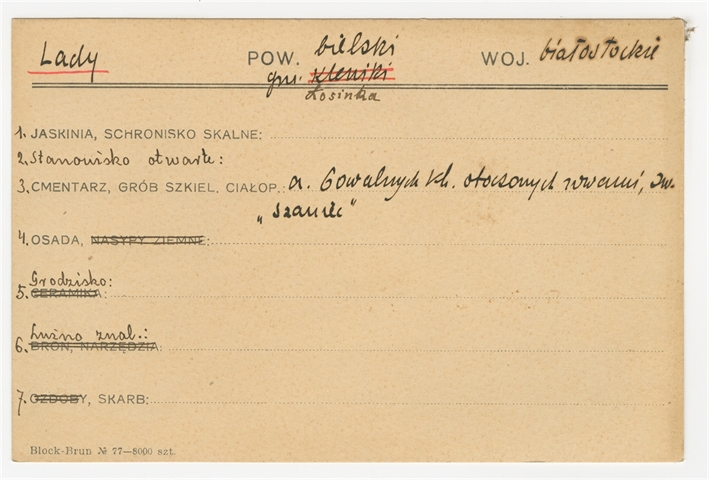 Lady POW. bielski WOJ. białostockie
gm. Kleniki
Łosinka
1. JASKINIA, SCHRONISKO SKALNE:
2. Stanowisko otwarte:
3. CMENTARZ, GRÓB SZKIEL. CIAŁOP.: a. 6 owalnych kh. otoczonych rowami, zw.
„Szaniec"
4. OSADA, NASYPY ZIEMNE:
Grodzisko:
5. CERAMIKA:
Luźno znal.:
6. BROŃ, NARZĘDZIA:
7. OZDOBY, SKARB:
Block-Brun № 77—8000 szt.